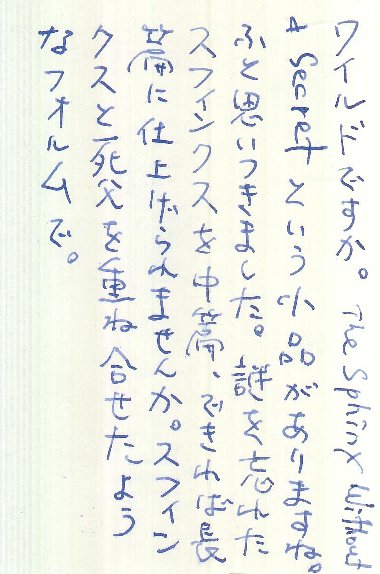 ワイルドですか。The Sphinx Without
A Secret という小品がありますね。
ふと思いつきました。謎を忘れた
スフィンクスを中篇、できれば長
篇に仕上げられませんか。スフィン
クスと死父を重ね合せたよう
なフォルムで。